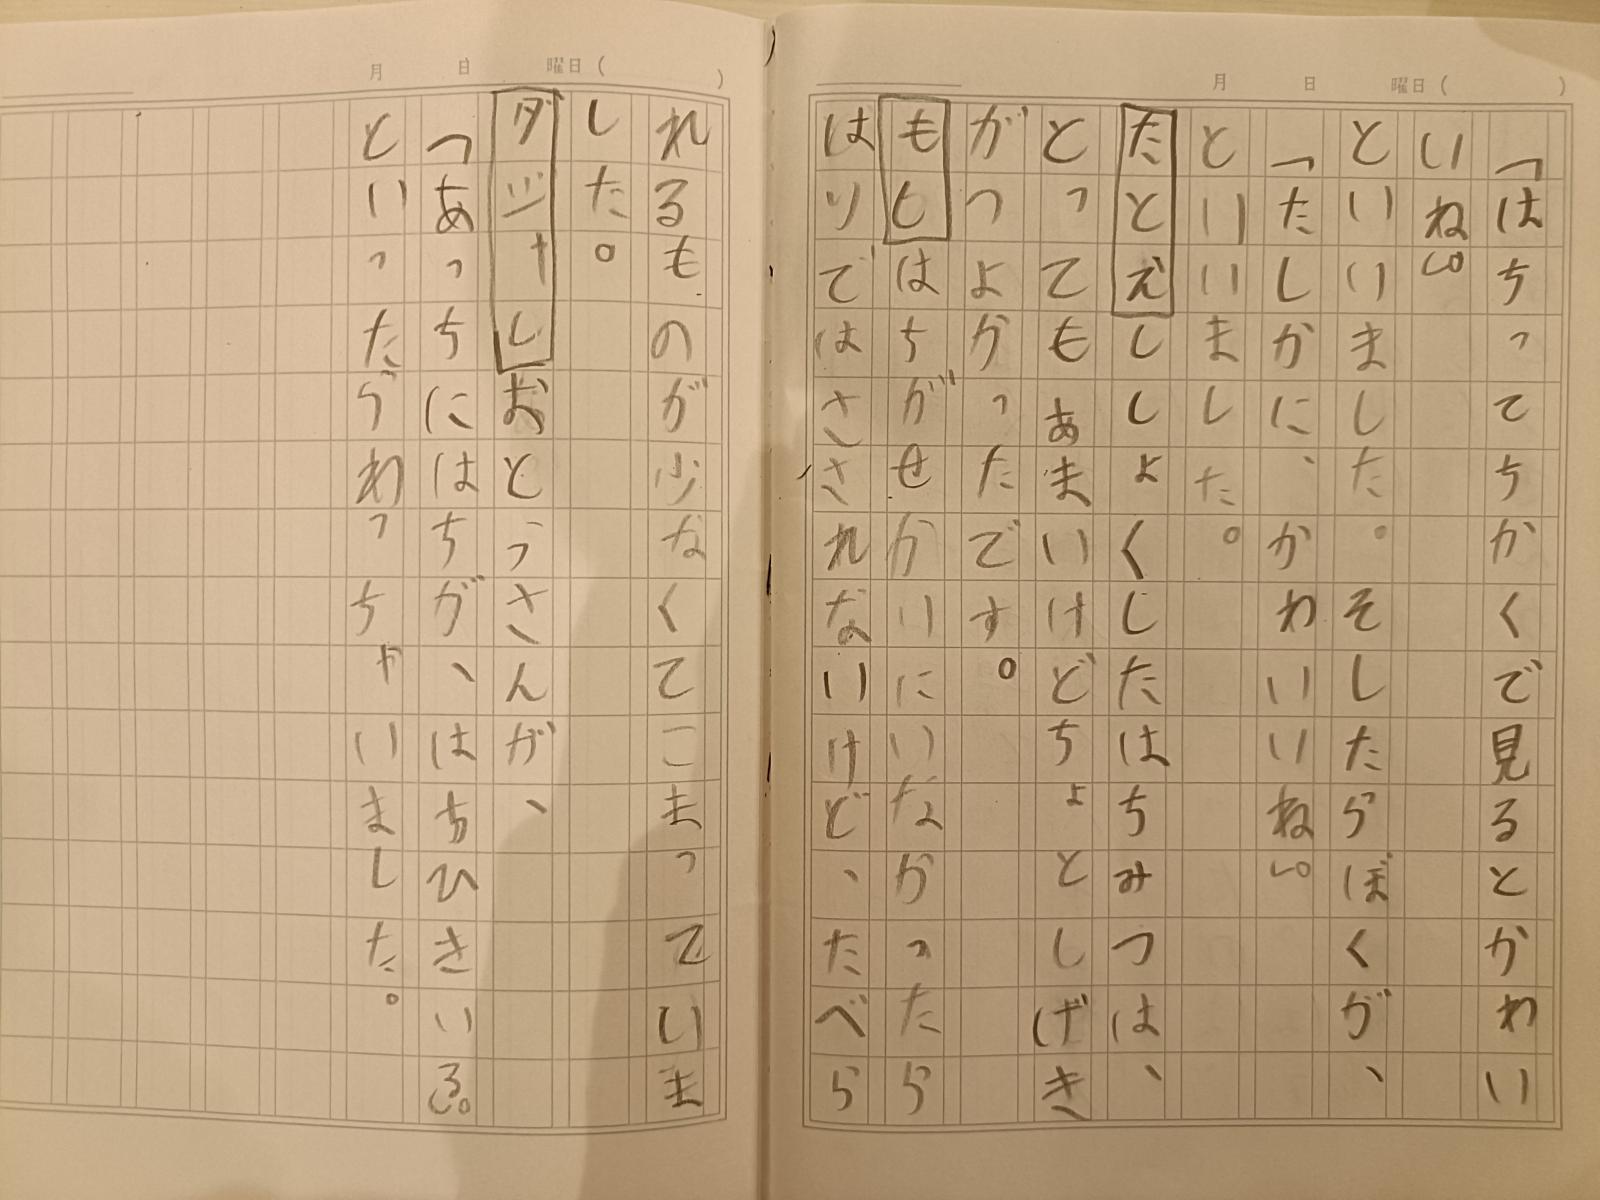 月 日 曜日( )
「はちってちかくで見るとかわい
いね。」
といいました。そしたらぼくが、
「たしかに、かわいいね。」
といいました。
たとえししょくしたはちみつは、
とってもあまいけどちょとしげき
がつよかったです。
もしはちがせかいにいなかったら
はりではさされないけど、たべら
月 日 曜日( )
れるものが少なくてこまっていま
した。
ダジャレおとうさんが、
「あっちにはちが、はちひきいる。」
といったらわっちゃいました。